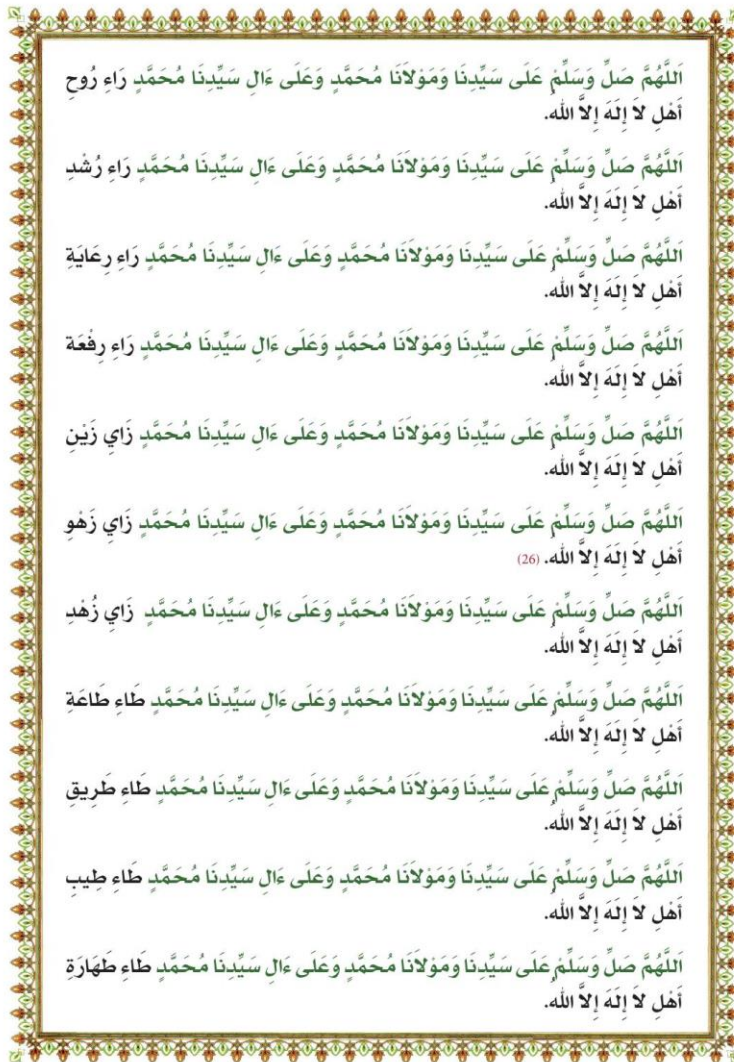 اَللَّهُمَّ صَلِّ وَسَلِّمْ عَلَى سَيِّدِنَا وَمَوْلَانَا مُحَمَّدٍ وَعَلَى ءَالِ سَيِّدِنَا مُحَمَّدٍ رَاءِ رُوحِ
أَهْلِ لاَ إِلَهَ إِلاَّ الله.
اَللَّهُمَّ صَلِّ وَسَلِّمْ عَلَى سَيِّدِنَا وَمَوْلَانَا مُحَمَّدٍ وَعَلَى ءَالِ سَيِّدِنَا مُحَمَّدٍ رَاءِ رُشْدِ
أَهْلِ لاَ إِلَهَ إِلاَّ الله.
اَللَّهُمَّ صَلِّ وَسَلِّمْ عَلَى سَيِّدِنَا وَمَوْلَانَا مُحَمَّدٍ وَعَلَى ءَالِ سَيِّدِنَا مُحَمَّدٍ رَاءِ رِعَايَةِ
أَهْلِ لاَ إِلَهَ إِلاَّ الله.
اَللَّهُمَّ صَلِّ وَسَلِّمْ عَلَى سَيِّدِنَا وَمَوْلَانَا مُحَمَّدٍ وَعَلَى ءَالِ سَيِّدِنَا مُحَمَّدٍ رَاءِ رِفْعَة
أَهْلِ لاَ إِلَهَ إِلاَّ الله.
اَللَّهُمَّ صَلِّ وَسَلِّمْ عَلَى سَيِّدِنَا وَمَوْلَانَا مُحَمَّدٍ وَعَلَى ءَالِ سَيِّدِنَا مُحَمَّدٍ زَايِ زَيْنِ
أَهْلِ لاَ إِلَهَ إِلاَّ الله.
اَللَّهُمَّ صَلِّ وَسَلِّمْ عَلَى سَيِّدِنَا وَمَوْلَانَا مُحَمَّدٍ وَعَلَى ءَالِ سَيِّدِنَا مُحَمَّدٍ زَايِ زَهْوِ
أَهْلِ لاَ إِلَهَ إِلاَّ الله. (26)
اَللَّهُمَّ صَلِّ وَسَلِّمْ عَلَى سَيِّدِنَا وَمَوْلَانَا مُحَمَّدٍ وَعَلَى ءَالِ سَيِّدِنَا مُحَمَّدٍ زَايِ زُهْدِ
أَهْلِ لاَ إِلَهَ إِلاَّ الله.
اَللَّهُمَّ صَلِّ وَسَلِّمْ عَلَى سَيِّدِنَا وَمَوْلَانَا مُحَمَّدٍ وَعَلَى ءَالِ سَيِّدِنَا مُحَمَّدٍ طَاءِ طَاعَةِ
أَهْلِ لاَ إِلَهَ إِلاَّ الله.
اَللَّهُمَّ صَلِّ وَسَلِّمْ عَلَى سَيِّدِنَا وَمَوْلَانَا مُحَمَّدٍ وَعَلَى ءَالِ سَيِّدِنَا مُحَمَّدٍ طَاءِ طَرِيقِ
أَهْلِ لاَ إِلَهَ إِلاَّ الله.
اَللَّهُمَّ صَلِّ وَسَلِّمْ عَلَى سَيِّدِنَا وَمَوْلَانَا مُحَمَّدٍ وَعَلَى ءَالِ سَيِّدِنَا مُحَمَّدٍ طَاءِ طِيبِ
أَهْلِ لاَ إِلَهَ إِلاَّ الله.
اَللَّهُمَّ صَلِّ وَسَلِّمْ عَلَى سَيِّدِنَا وَمَوْلَانَا مُحَمَّدٍ وَعَلَى ءَالِ سَيِّدِنَا مُحَمَّدٍ طَاءِ طَهَارَةِ
أَهْلِ لاَ إِلَهَ إِلاَّ الله.